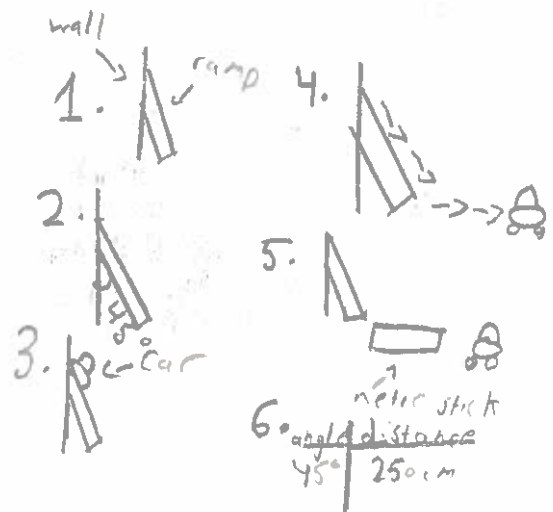 wall
ramp
1.
2.
45°
3.
car
4.
5.
metric stick
6.
angle distance
45° 250cm